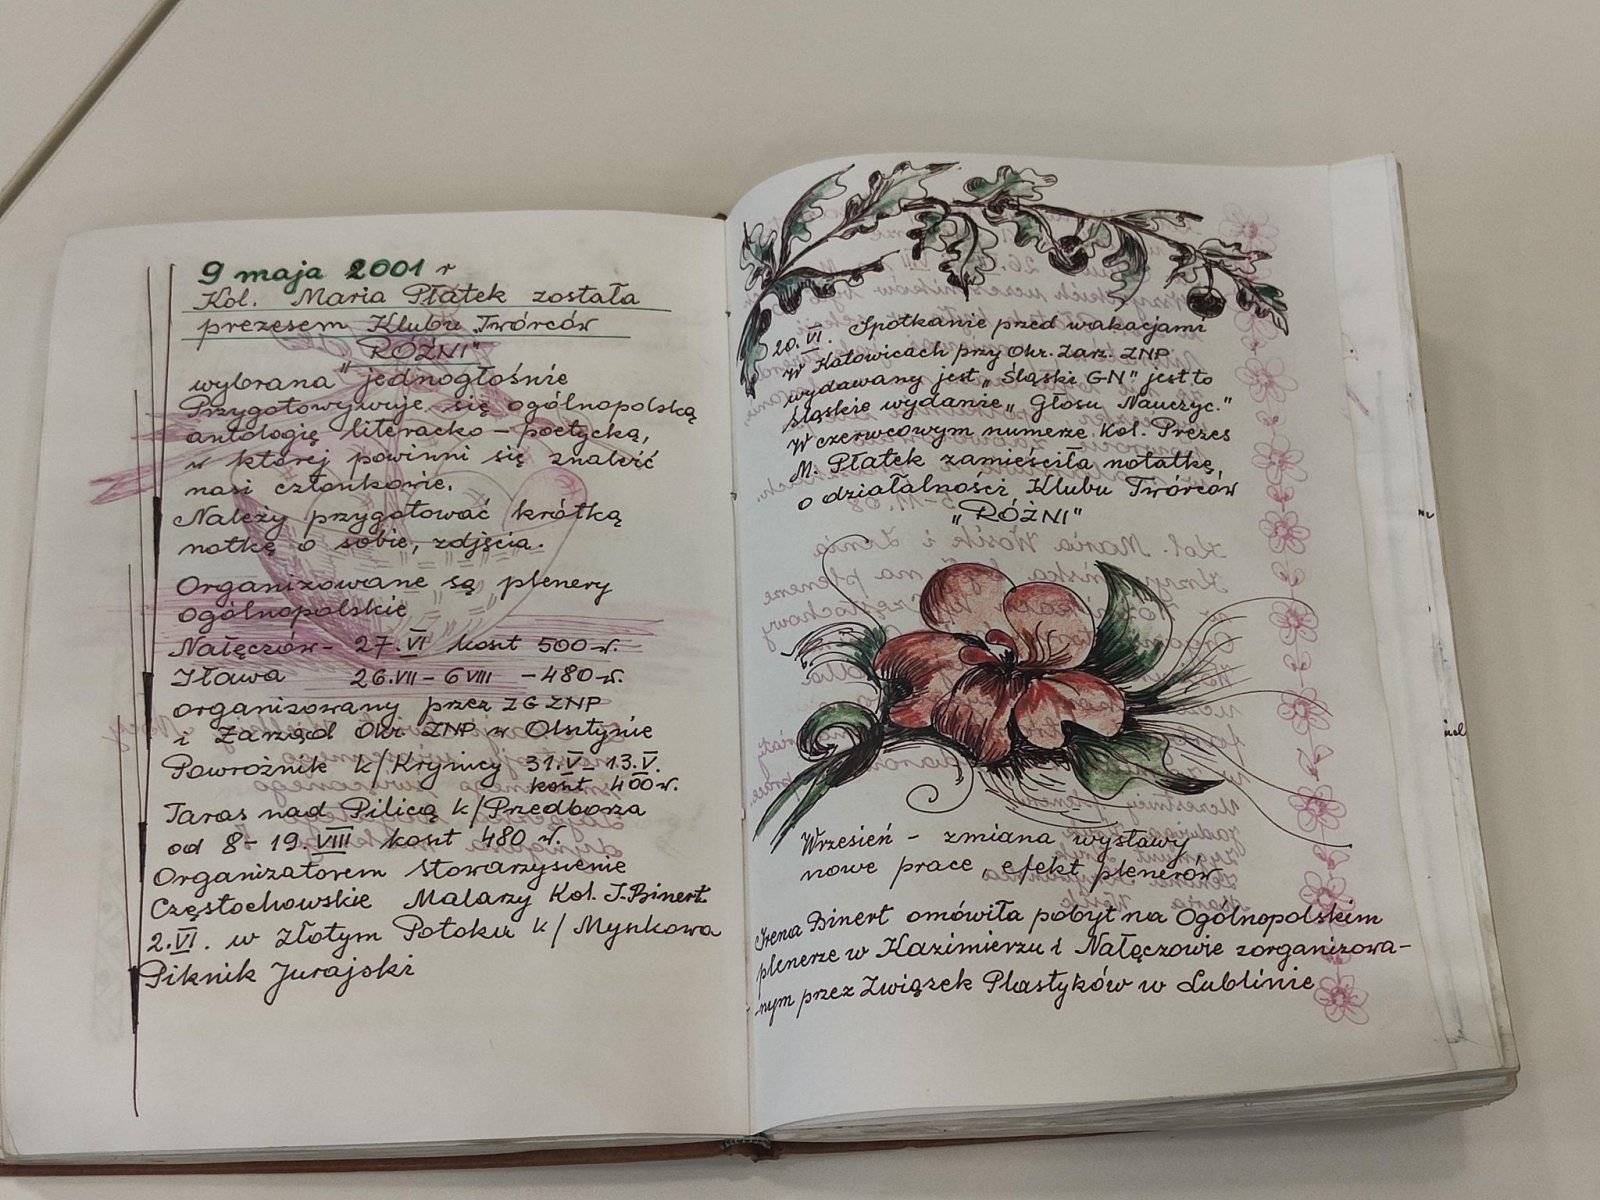 9 maja 2001 r
Kol. Maria Płatek została
prezesem Klubu Twórców
"RÓŻNI"
wybrana jednogłośnie
Przygotowywuje się ogólnopolską
antologię literacko - poetycką,
w której powinni się znaleźć
nasi członkowie.
Należy przygotować krótką
notkę o sobie, zdjęcia.
Organizowane są plenery
ogólnopolskie
Nałęczów - 27.VI koszt 500 zł.
Iława 26.VII - 6 VIII - 480 zł.
organizowany przez ZG ZNP
i Zarząd Okr ZNP w Olsztynie
Powroźnik k/Krynicy 31.V - 13.V.
koszt 400 zł.
Taras nad Pilicą k/Przedborza
od 8 - 19.VIII koszt 480 zł.
Organizatorem Stowarzyszenie
Częstochowskie Malarzy Kol. I. Binert
2.VI. w Złotym Potoku k/Myszkowa
Piknik Jurajski
20.VI. Spotkanie przed wakacjami
W Katowicach przy Okr. Zarz. ZNP
wydawany jest „Śląski GN" jest to
śląskie wydanie „Głosu Nauczyc."
W czerwcowym numerze Kol. Prezes
M. Płatek zamieściła notatkę,
o działalności Klubu Twórców
„RÓŻNI"
Wrzesień - zmiana wystawy
nowe prace efekt plenerów
Irena Binert omówiła pobyt na Ogólnopolskim
plenerze w Kazimierzu i Nałęczowie zorganizowa-
-nym przez Związek Plastyków w Lublinie